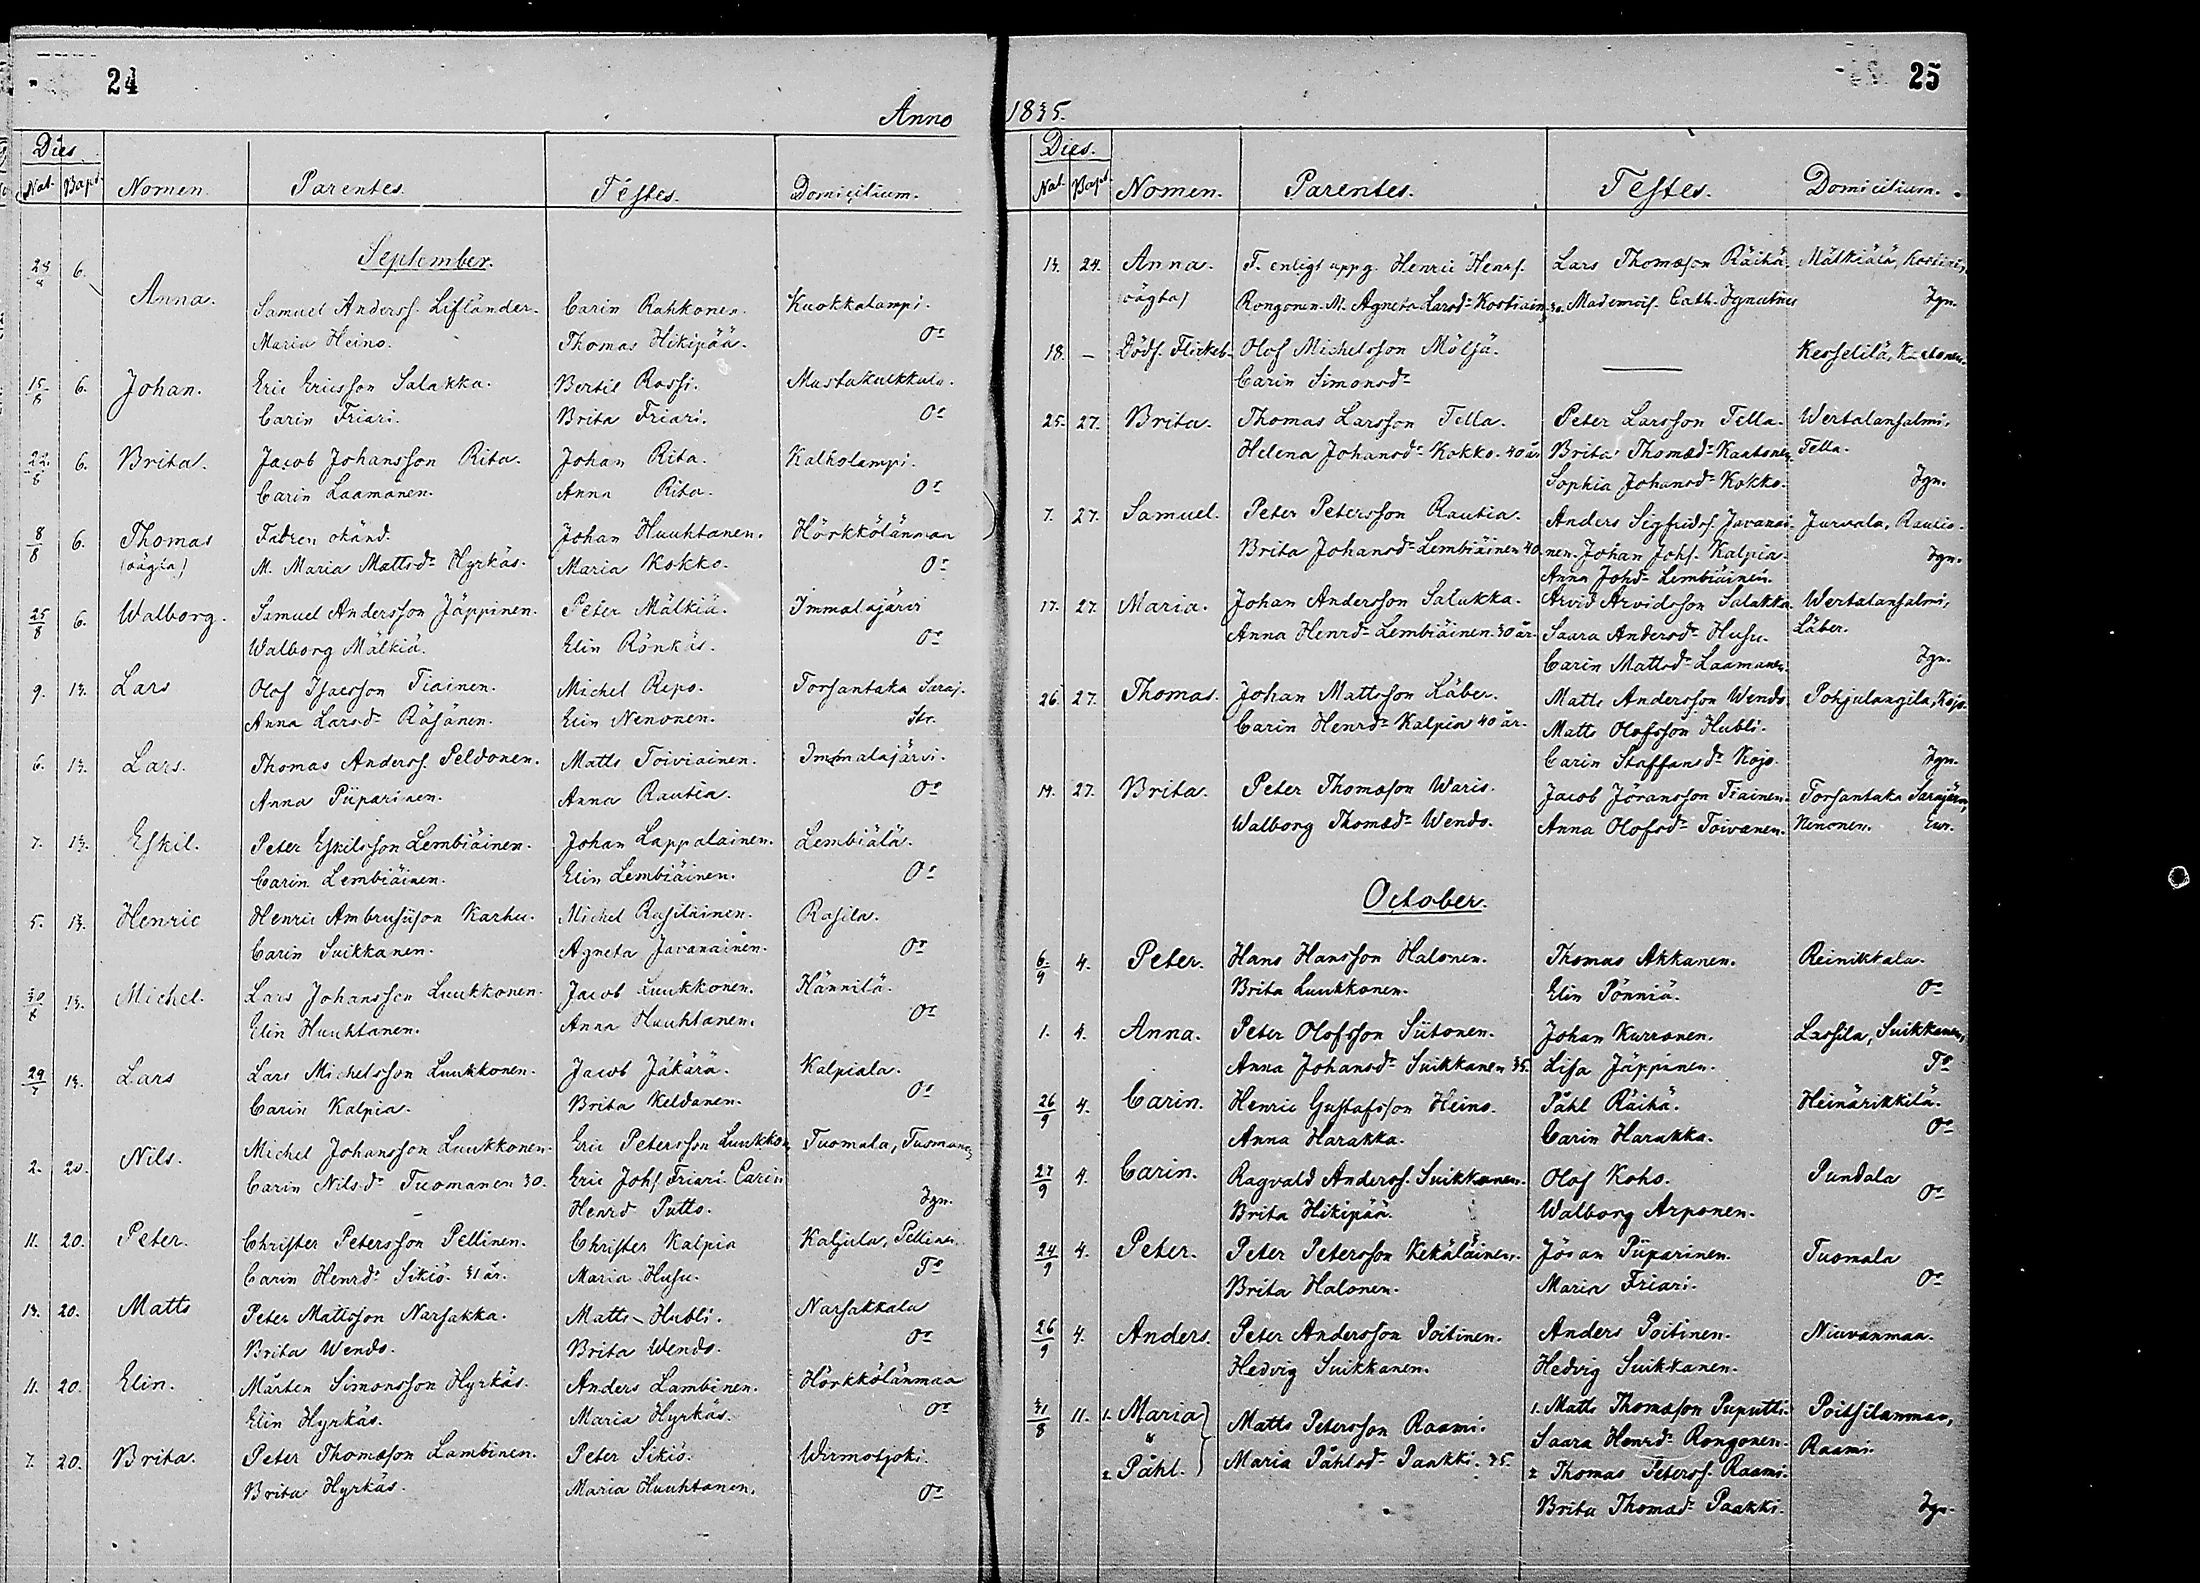 24
Anno
Dies.
Nat. Bapt. Nomen. Parentes. Testes. Domicilium.
September.
6.
Anna. Samuel Anderss. Lifländer. Carin Rahkonen. Kuokkalampi.
Maria Heino. Thomas Hikipää. Or
15/8 6. Johan. Eric Ericsson Salakka. Bertil Rossi. Mustakulkkula.
Carin Friari. Brita Friari. Or
22/8 6. Brita. Jacob Johansson Rita. Johan Rita. Kalholampi.
Carin Laamanen. Anna Rita. Or
8/8 6. Thomas Fadren okänd. Johan Huuhtanen. Hörkkölänmaa
(oägta) M. Maria Mattsdr Hyrkäs. Maria Kokko. Or
25/8 6. Walborg. Samuel Andersson Jäppinen. Peter Mälkiä. Immalajärvi
Walborg Mälkiä. Elin Rönkäs. Or
9. 13. Lars Olof Isacsson Tiainen. Michel Repo. Torsantaka Saraj.
Anna Larsdr Räsänen. Elin Nenonen. Str.
6. 13. Lars. Thomas Anderss. Peldonen. Matts Toiviainen. Immalajärvi.
Anna Piiparinen. Anna Rautia. Or
7. 13. Eskil. Peter Eskilsson Lembiäinen. Johan Lappalainen. Lembiälä.
Carin Lembiäinen. Elin Lembiäinen. Or
5. 13. Henric Henric Ambrusiison Karhu. Michel Rasiläinen. Rasila.
Carin Suikkanen. Agneta Javanainen. Or
30/8 13. Michel. Lars Johansson Luukkonen. Jacob Luukkonen. Hännilä.
Elin Huuhtanen. Anna Huuhtanen. Or
29/7 13. Lars Lars Michelsson Luukkonen. Jacob Jäkärä. Kalpiala.
Carin Kalpia. Brita Keldanen. Or
2. 20. Nils. Michel Johansson Luukkonen. Eric Petersson Luukko, Tuomala, Tuomanen
Carin Nilsdr Tuomanen 30. Eric Johs Friari. Carin
Henrd Putto. Jgn.
11. 20. Peter. Christer Petersson Pellinen. Christer Kalpia Kaljula, Pellinen.
Carin Henrdr Sikiö. 31 år. Maria Husu. Tr
13. 20. Matts Peter Mattsson Narsakka. Matts Hubli. Narsakkala
Brita Wendo. Brita Wendo. Or
11. 20. Elin. Mårten Simonsson Hyrkäs. Anders Lambinen. Hörkkölänmaa
Elin Hyrkäs. Maria Hyrkäs. Or
7. 20. Brita. Peter Thomasson Lambinen. Peter Sikiö. Wirmotjoki.
Brita Hyrkäs. Maria Huuhtanen. Or
25
1835.
Dies.
Nat. Bapt. Nomen. Parentes. Testes. Domicilium.
13. 24. Anna. F. enligt uppg. Henric Henrs. Lars Thomasson Räihä. Mälkiälä, Kostiain,
(oägta) Rongonen. M. Agneta Larsdr Kostiain. 30. Mademois. Cath. Ignatius Jgn.
18. — Dödf. Flickeb. Olof Michelsson Mölsä. — Kesselilä,
Carin Simonsdr
25. 27. Brita. Thomas Larsson Tella. Peter Larsson Tella. Wertalansalmi,
Helena Johansdr Kokko. 40 år. Brita Thomædr Kaatonen. Tella.
Sophia Johansdr Kokko. Jgn.
7. 27. Samuel. Peter Petersson Rautia. Anders Sigfridss. Javanai- Jurvala, Rautia.
Brita Johansdr Lembiäinen 40 nen. Johan Johs. Kalpia. Jgn.
Anna Johdr Lembiäinen.
17. 27. Maria. Johan Andersson Salukka. Arvid Arvidsson Salakka. Wertalansalmi,
Anna Henrdr Lembiäinen. 30 år. Saara Andersdr Husu. Läber.
Carin Mattsdr Laamanen. Jgn.
26. 27. Thomas. Johan Mattsson Läber. Matts Andersson Wendo. Pohjulangila, Kojo.
Carin Henrdr Kalpia 40 år. Matts Olofsson Hubli.
Carin Staffansdr Kojo. Jgn.
19. 27. Brita. Peter Thomasson Waris. Jacob Jöransson Tiainen. Torsantaka Sarajärvi,
Walborg Thomædr Wendo. Anna Olofsdr Toivanen. Nenonen. Eur.
October.
6/9 4. Peter. Hans Hansson Halonen. Thomas Akkanen. Reinikkala.
Brita Luukkonen. Elin Pönniä. Or
1. 4. Anna. Peter Olofsson Siitonen. Johan Kurronen. Lassila, Suikkanen,
Anna Johansdr Suikkanen 35. Lisa Jäppinen. Tr
26/9 4. Carin. Henric Gustafsson Heino. Påhl Räihä. Heinärikkilä.
Anna Harakka. Carin Harakka. Or
27/9 4. Carin. Ragvald Anderss. Suikkanen. Olof Koho. Pundala
Brita Hikipää. Walborg Arponen. Or
24/9 4. Peter. Peter Petersson Kekäläinen. Jöran Piiparinen. Tuomala
Brita Halonen. Maria Friari. Or
26/9 4. Anders. Peter Andersson Poitinen. Anders Poitinen. Niuvanmaa.
Hedvig Suikkanen. Hedvig Suikkanen.
31/8 11. 1. Maria Matts Petersson Raami. 1. Matts Thomasson Puputti. Poitsilanmaa,
Saara Henrdr Rongonen. Raami.
2. Påhl. Maria Påhlsdr Pankki. 35. 2 Thomas Peterss. Raami.
Brita Thomædr Paakki. Jgn.